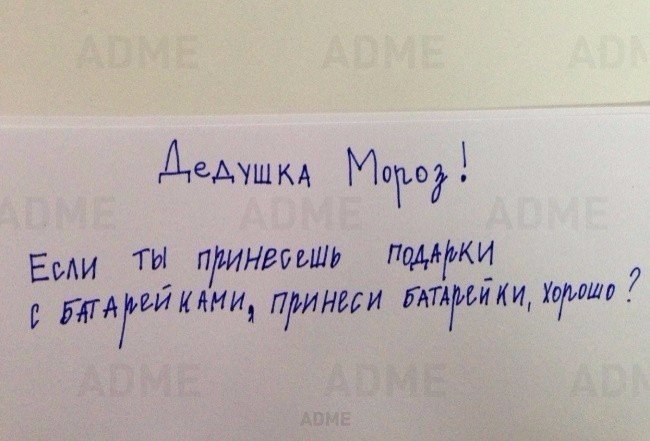 ADME ADME ADME
Дедушка Мороз!
ADME ADME ADME
Если ты принесешь подарки
с батарейками, принеси батарейки, хорошо?
ADME ADME ADME
ADME